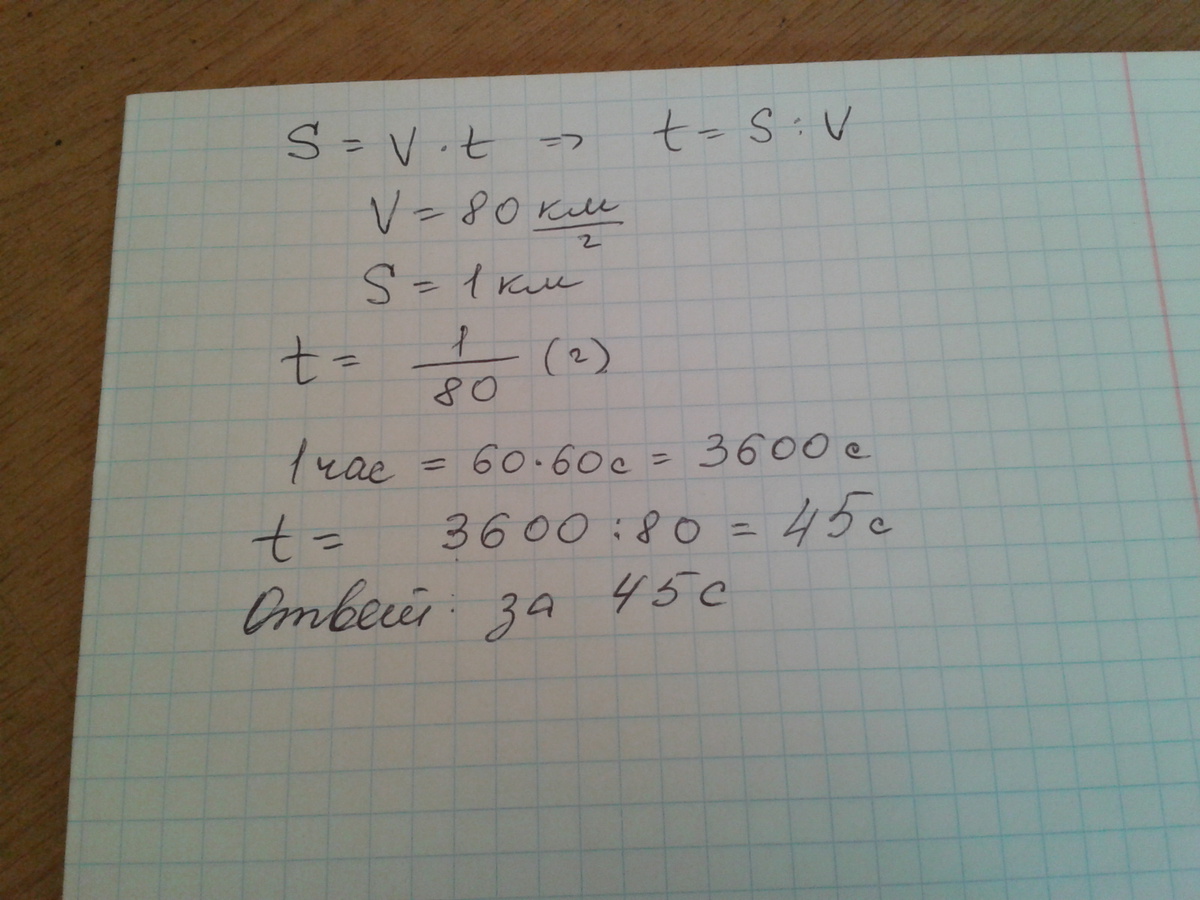 S = V · t => t = S : V
V = 80 км/г
S = 1 км
t = 1/80 (г)
1 час = 60·60с = 3600 с
t = 3600 : 80 = 45 с
Ответ: за 45 с